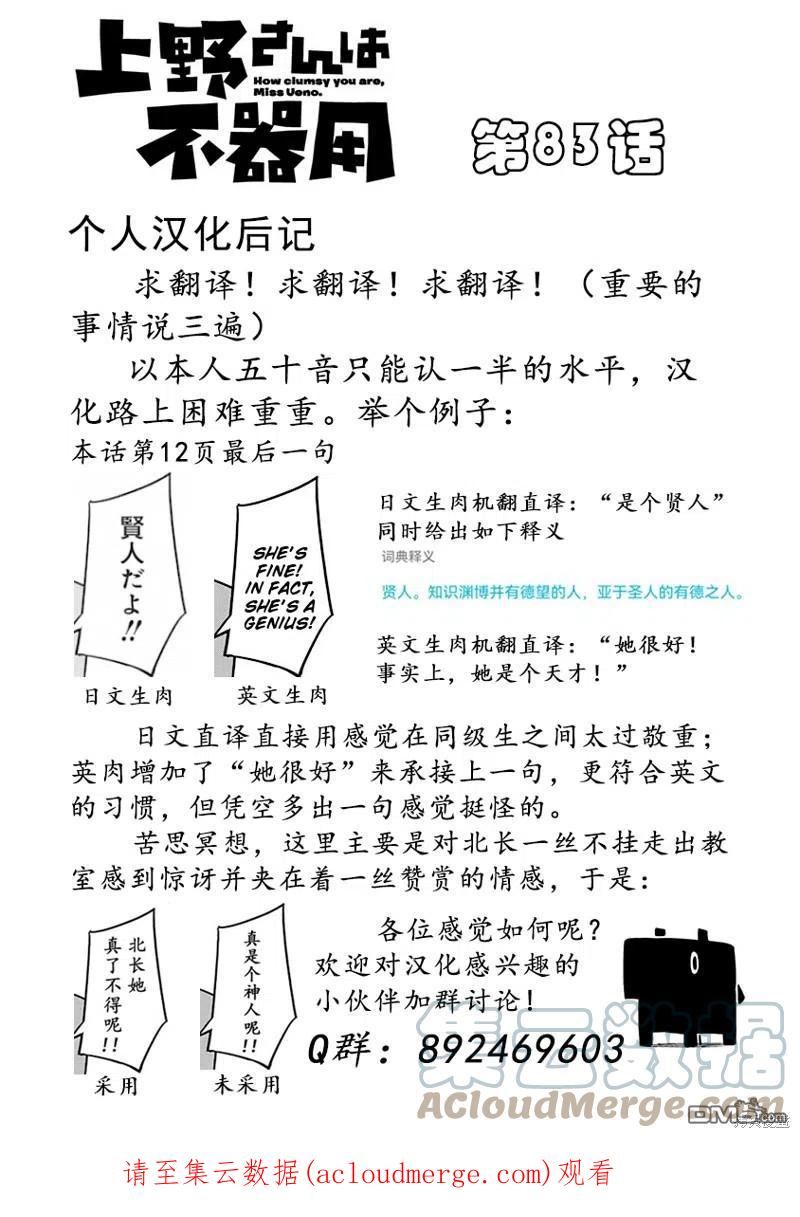 上野さんは
How clumsy you are,
Miss Ueno.
不器用
第83话
个人汉化后记
求翻译！求翻译！求翻译！（重要的
事情说三遍）
以本人五十音只能认一半的水平，汉
化路上困难重重。举个例子：
本话第12页最后一句
賢人だよ!!
SHE'S
FINE!
IN FACT,
SHE'S A
GENIUS!
日文生肉机翻直译：“是个贤人”
同时给出如下释义
词典释义
贤人。知识渊博并有德望的人，亚于圣人的有德之人。
英文生肉机翻直译：“她很好！
事实上，她是个天才！”
日文生肉
英文生肉
日文直译直接用感觉在同级生之间太过敬重；
英肉增加了“她很好”来承接上一句，更符合英文
的习惯，但凭空多出一句感觉挺怪的。
苦思冥想，这里主要是对北长一丝不挂走出教
室感到惊讶并夹在着一丝赞赏的情感，于是：
北长她
真了不得呢!!
真是个神人呢!!
采用
未采用
各位感觉如何呢？
欢迎对汉化感兴趣的
小伙伴加群讨论！
Q群：892469603
集云数据
AcloudMerge.com
DM5.com
请至集云数据(acloudmerge.com)观看